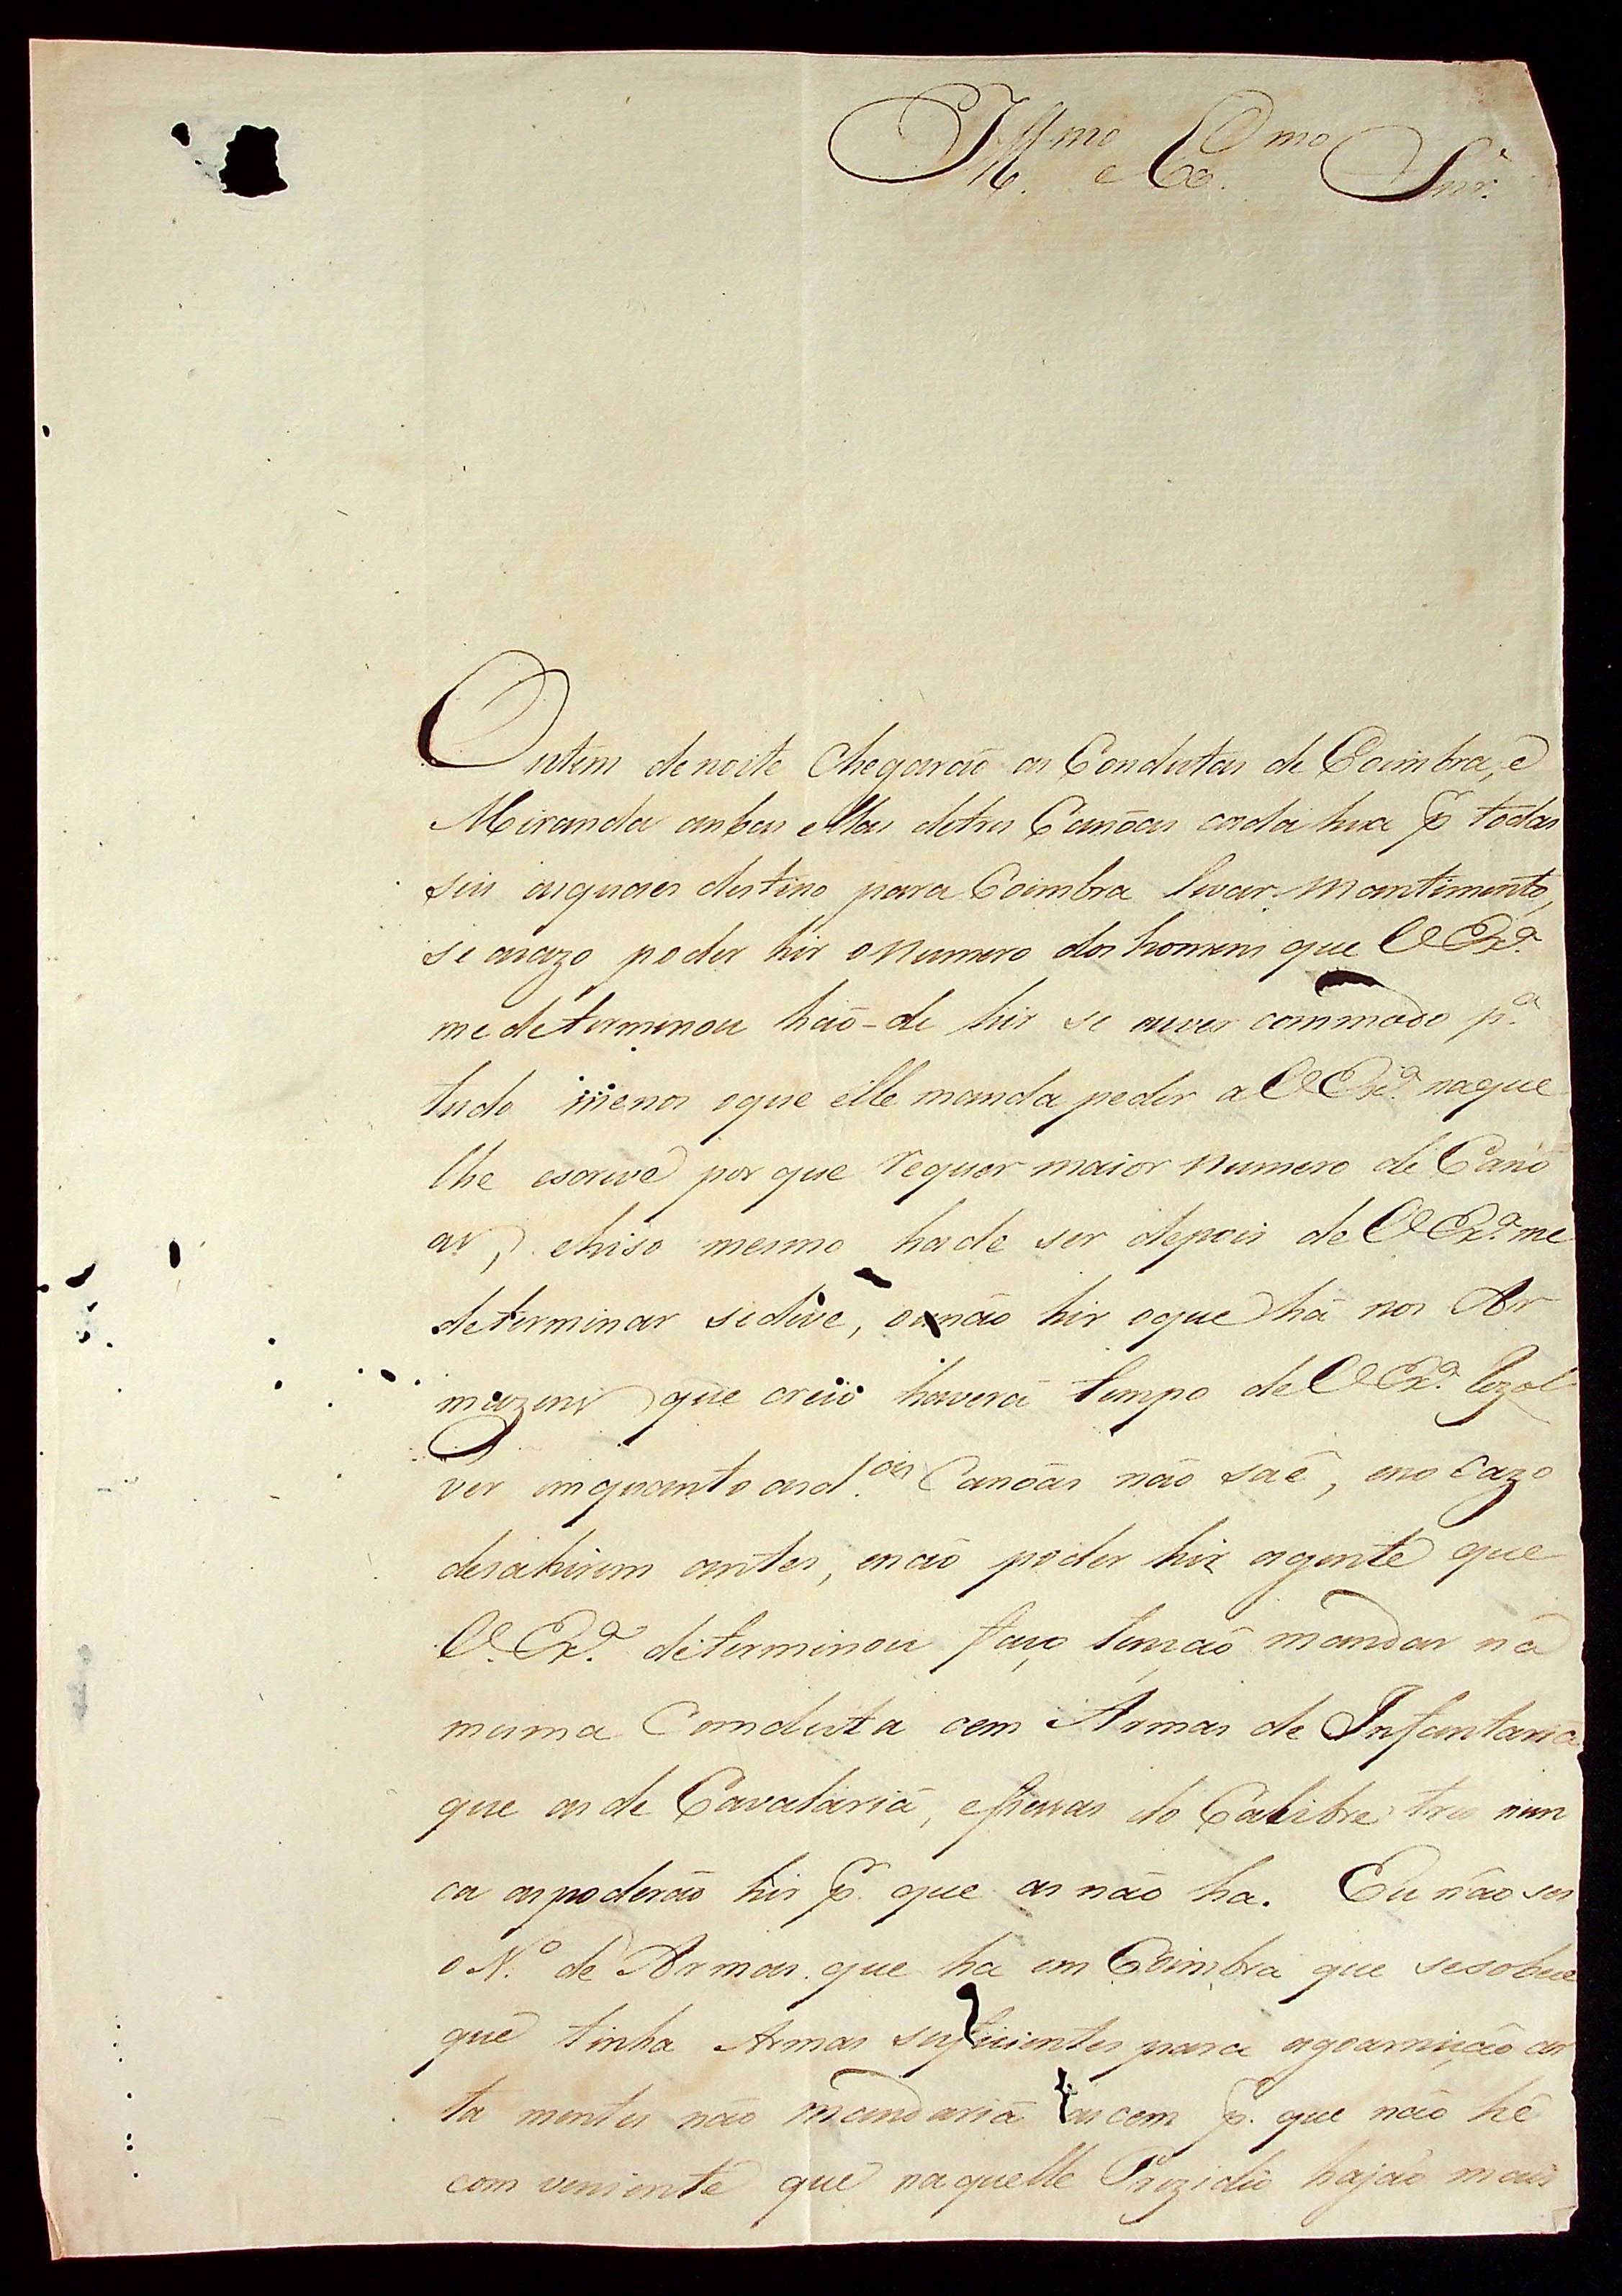 Ill.mo e Ex.mo Snr.
Ontem denoite Chegarão as Condutas de Coimbra, e
Miranda anbas ellas detres Canôas cada hua p. todas
seis asquaes destino para Coimbra levar mantimento,
se acazo poder hir o numero dos homens que V Ex.ª
me determinou hão-de hir se ouver commodo p.ª
tudo menos oque elle manda pedir a V Ex.ª naque
lhe escreve por que requer maior numero de Canô
as, ehiso mesmo hade ser depois de V Ex.ª me
determinar sedeve, ounão hir oque há nos Ar
mazens que creio haverá tempo de V Ex.ª Rezol
ver emquanto asd.as Canôas não saê, eno cazo
desahirem antes, enão poder hir agente que
V. Ex.ª determinou faço tenção mandar na
mesma Conduta cem Armas de Infantaria
que as de Cavalaria, epessas do Calibre tres nun
ca aspoderão hir p. que as não ha. Eu não sei
o N.º de Armas que há em Coimbra que sesobese
que tinha Armas suficientes para agoarnição cer
ta mentes não mandaria as cem p. que não hé
com veniente que naquelle Prezidio hajão mais